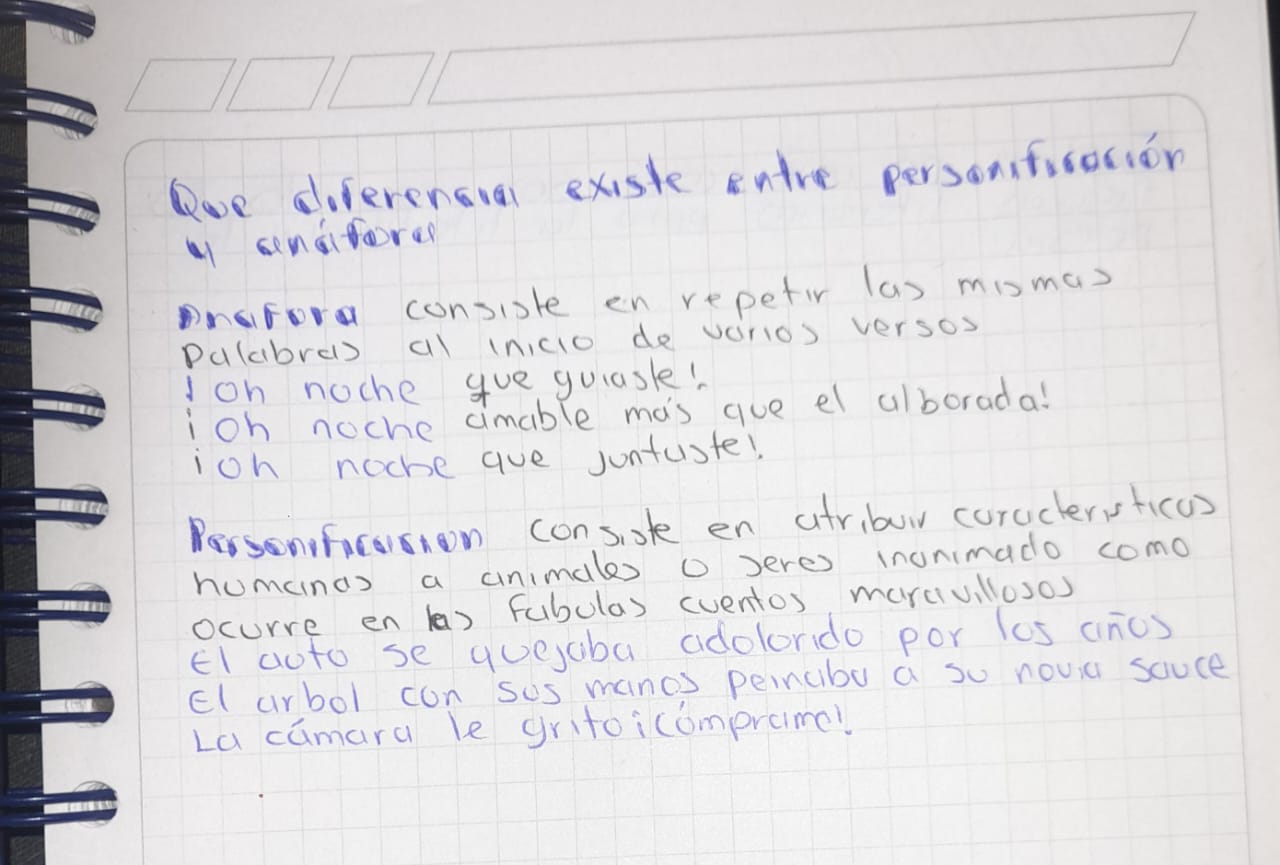 Que diferencia existe entre personificación
y anáfora
Anafora consiste en repetir las mismas
palabras al inicio de varios versos
¡Oh noche que guiaste!
¡Oh noche amable más que el alborada!
¡Oh noche que juntaste!
Personificasion consiste en atribuir caracteristicas
humanas a animales o seres inanimado como
ocurre en las fabulas cuentos maravillosos
El auto se quejaba adolorido por los años
El arbol con sus manos peinaba a su novia sauce
La cámara le grito ¡cómprame!